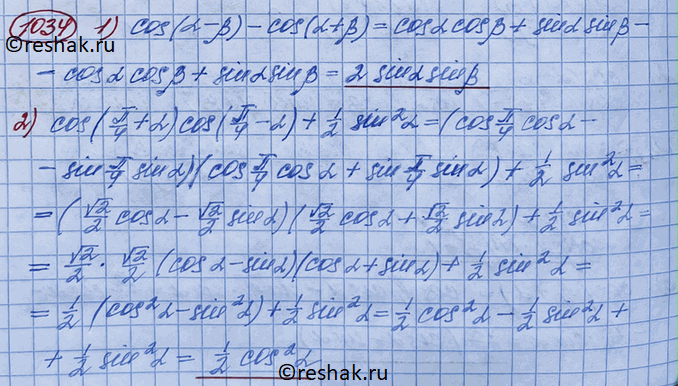 1034 1) cos(α-β) - cos(α+β) = cosα cosβ + sinα sinβ -
©reshak.ru
- cosα cosβ + sinα sinβ = 2 sinα sinβ
2) cos(π/4 + α) cos(π/4 - α) + 1/2 sin²α = (cos π/4 cosα -
- sin π/4 sinα)(cos π/4 cosα + sin π/4 sinα) + 1/2 sin²α =
= (√2/2 cosα - √2/2 sinα)(√2/2 cosα + √2/2 sinα) + 1/2 sin²α =
= √2/2 · √2/2 (cosα - sinα)(cosα + sinα) + 1/2 sin²α =
= 1/2 (cos²α - sin²α) + 1/2 sin²α = 1/2 cos²α - 1/2 sin²α +
+ 1/2 sin²α = 1/2 cos²α
©reshak.ru